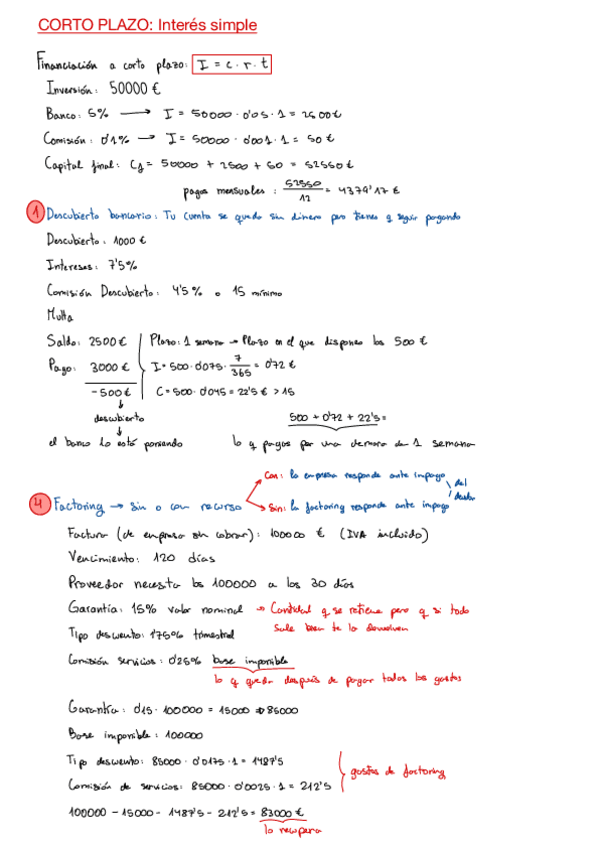 CORTO PLAZO: Interés simple
Financiación a corto plazo: I = c · r · t
Inversión: 50000 €
Banco: 5% → I = 50000 · 0'05 · 1 = 2500€
Comisión: 0'1% → I = 50000 · 0'001 · 1 = 50 €
Capital final: C1 = 50000 + 2500 + 50 = 52550 €
pagos mensuales: 52550/12 = 4379'17 €
1 Descubierto bancario: Tu cuenta se queda sin dinero pero tienes q seguir pagando
Descubierto: 1000 €
Intereses: 7'5%
Comisión Descubierto: 4'5% o 15 mínimo
Multa
Saldo: 2500 € Plazo: 1 semana → Plazo en el que dispones los 500 €
Pago: 3000 € I = 500 · 0'075 · 7/365 = 0'72 €
-500 € C = 500 · 0'045 = 22'5 € > 15
descubierto 500 + 0'72 + 22'5 =
el banco lo está poniendo lo q pagas por una demora de 1 semana
Con: la empresa responde ante impago
4 Factoring → sin o con recurso del deudor
Sin: la factoring responde ante impago
Factura (de empresa sin cobrar): 100000 € (IVA incluido)
Vencimiento: 120 días
Proveedor necesita los 100000 a los 30 días
Garantía: 15% valor nominal → Cantidad q se retiene pero q si todo
sale bien te lo devuelven
Tipo descuento: 1'75% trimestral
Comisión servicios: 0'25% base imponible
lo q queda después de pagar todos los gastos
Garantía: 0'15 · 100000 = 15000 → 85000
Base imponible: 100000
Tipo descuento: 85000 · 0'0175 · 1 = 1487'5
gastos de factoring
Comisión de servicios: 85000 · 0'0025 · 1 = 212'5
100000 - 15000 - 1487'5 - 212'5 = 83000 €
lo recupera